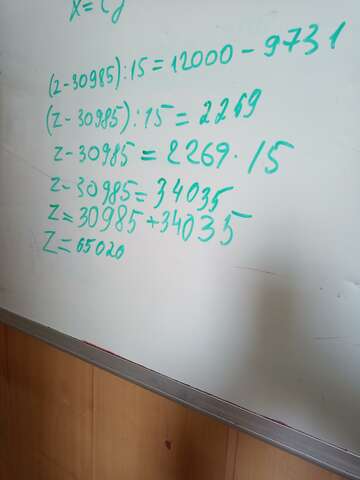 (z-30985):15=12000-9731
(z-30985):15=2269
z-30985=2269·15
z-30985=34035
z=30985+34035
z=65020